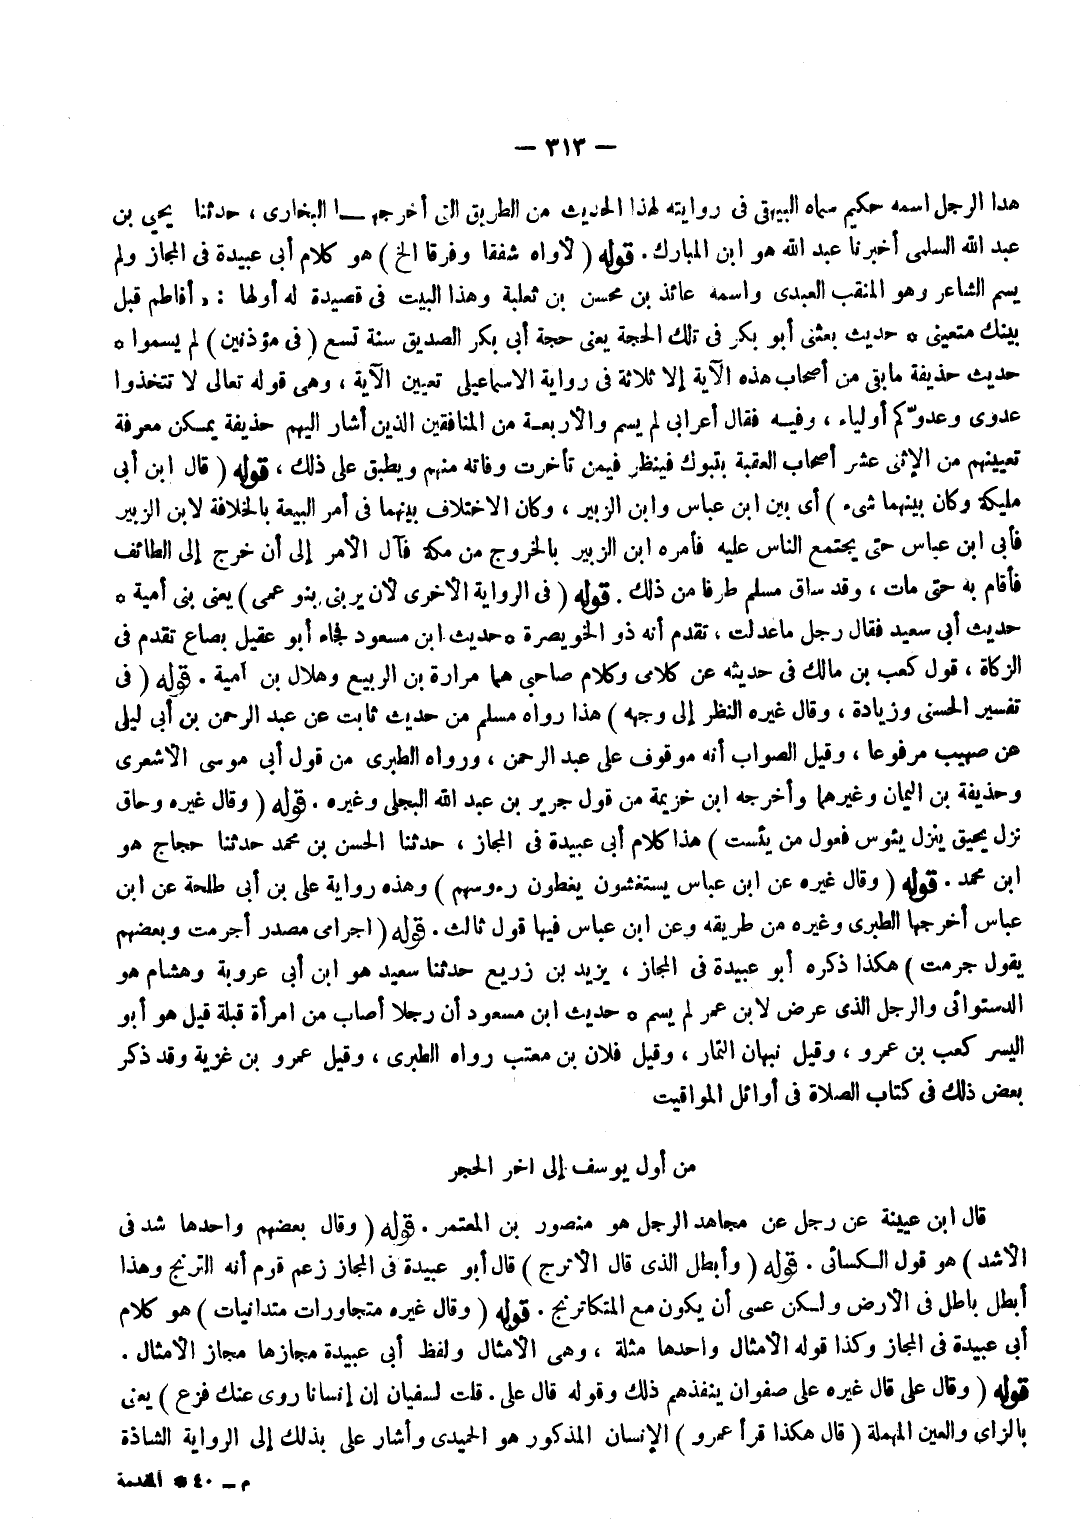 — ٣١٣ —
هذا الرجل اسمه حكيم سماه البيهقى فى روايته لهذا الحديث من الطريق التى أخرجهـــا البخارى ، حدثنا يحيى بن
عبد الله السلمى أخبرنا عبد الله هو ابن المبارك . قوله ( لأواه شفقا وفرقا الخ ) هو كلام أبى عبيدة فى المجاز ولم
يسم الشاعر وهو المنقب العبدى واسمه عائذ بن محسن بن ثعلبة وهذا البيت فى قصيدة له أولها : , أفاطم قبل
بينك متعينى * حديث بعثنى أبو بكر فى تلك الحجة يعنى حجة أبى بكر الصديق سنة تسع ( فى مؤذنين ) لم يسموا *
حديث حذيفة مابقى من أصحاب هذه الآية إلا ثلاثة فى رواية الاسماعيلى تعيين الآية ، وهى قوله تعالى لا تتخذوا
عدوى وعدوّكم أولياء ، وفيـه فقال أعرابى لم يسم والأربعـة من المنافقين الذين أشار اليهم حذيفة يمـكن معرفة
تعيينهم من الإثنى عشر أصحاب العقبة بتبوك فينظر فيمن تأخرت وفاته منهم ويطبق على ذلك ، قوله ( قال ابن أبى
مليكة وكان بينهما شىء ) أى بين ابن عباس وابن الزبير ، وكان الاختلاف بينهما فى أمر البيعة بالخلافة لابن الزبير
فأبى ابن عباس حتى يجتمع الناس عليه فأمره ابن الزبير بالخروج من مكة فآل الأمر إلى أن خرج إلى الطائف
فأقام به حتى مات ، وقد ساق مسلم طرفا من ذلك . قوله ( فى الرواية الأخرى لأن يربنى بنو عمى ) يعنى بنى أمية *
حديث أبى سعيد فقال رجل ماعدلت ، تقدم أنه ذو الخويصرة * حديث ابن مسعود فجاء أبو عقيل بصاع تقدم فى
الزكاة ، قول كعب بن مالك فى حديثه عن كلامى وكلام صاحبى هما مرارة بن الربيع وهلال بن أمية . قوله ( فى
تفسير الحسنى وزيادة ، وقال غيره النظر إلى وجهه ) هذا رواه مسلم من حديث ثابت عن عبد الرحمن بن أبى ليلى
عن صهيب مرفوعا ، وقيل الصواب أنه موقوف على عبد الرحمن ، ورواه الطبرى من قول أبى موسى الأشعرى
وحذيفة بن اليمان وغيرهما وأخرجه ابن خزيمة من قول جرير بن عبد الله البجلى وغيره . قوله ( وقال غيره وحاق
نزل يحيق ينزل يئوس فعول من يئست ) هذا كلام أبى عبيدة فى المجاز ، حدثنا الحسن بن محمد حدثنا حجاج هو
ابن محمد . قوله ( وقال غيره عن ابن عباس يستغشون يغطون رءوسهم ) وهذه رواية على بن أبى طلحة عن ابن
عباس أخرجها الطبرى وغيره من طريقه وعن ابن عباس فيها قول ثالث . قوله ( اجرامى مصدر أجرمت وبعضهم
يقول جرمت ) هكذا ذكره أبو عبيدة فى المجاز ، يزيد بن زريع حدثنا سعيد هو ابن أبى عروبة وهشام هو
الدستوائى والرجل الذى عرض لابن عمر لم يسم * حديث ابن مسعود أن رجلا أصاب من امرأة قبلة قيل هو أبو
اليسر كعب بن عمرو ، وقيل نبهان التمار ، وقيل فلان بن معتب رواه الطبرى ، وقيل عمرو بن غزية وقد ذكر
بعض ذلك فى كتاب الصلاة فى أوائل المواقيت
من أول يوسف إلى اخر الحجر
قال ابن عيينة عن رجل عن مجاهد الرجل هو منصور بن المعتمر . قوله ( وقال بعضهم واحدها شد فى
الأشد ) هو قول الـكسائى . قوله ( وأبطل الذى قال الأترج ) قال أبو عبيدة فى المجاز زعم قوم أنه الترنج وهذا
أبطل باطل فى الأرض ولـكن عسى أن يكون مع المتكاترنج . قوله ( وقال غيره متجاورات متدانيات ) هو كلام
أبى عبيدة فى المجاز وكذا قوله الأمثال واحدها مثلة ، وهى الأمثال ولفظ أبى عبيدة مجازها مجاز الأمثال .
قوله ( وقال على قال غيره على صفوان ينفذهم ذلك وقوله قال على . قلت لسفيان إن إنسانا روى عنك فزع ) يعنى
بالزاى والعين المهملة ( قال هكذا قرأ عمرو ) الإنسان المذكور هو الحميدى وأشار على بذلك إلى الرواية الشاذة
م ــ ٤٠ * المقدمة